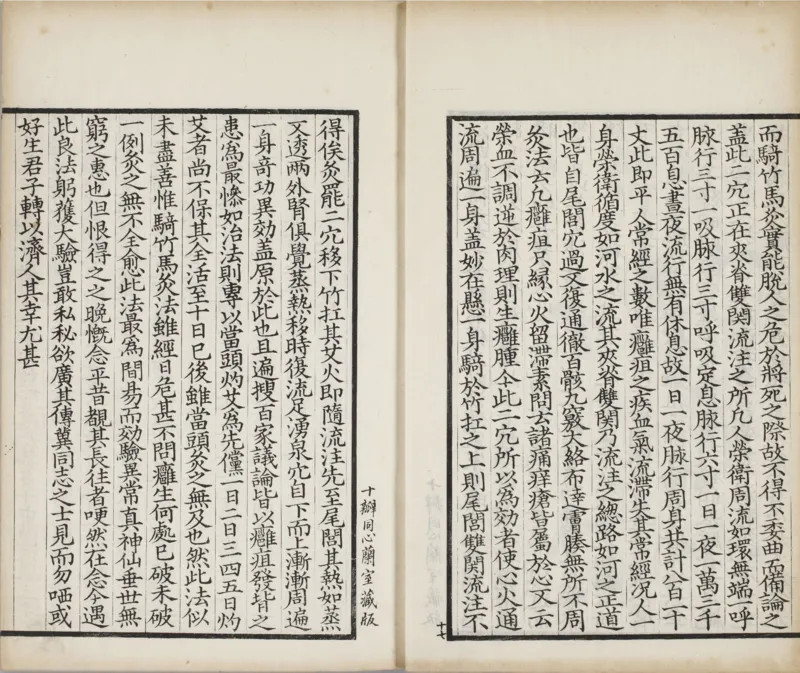 而騎竹馬灸實能脫人之危於將死之際故不得不委曲而備論之
蓋此二穴正在夾脊雙関流注之所凡人榮衛周流如環無端一呼
脉行三寸一吸脉行三寸呼吸定息脉行六寸一日一夜一萬三千
五百息晝夜流行無有休息故一日一夜脉行周身共計八百一十
丈此即平人常經之數唯癰疽之疾血氣流滯失其常經况人一
身榮衛循度如河水之流其夾脊雙関乃流注之総路如河之正道
也皆自尾閭穴過又復通徹百骸九竅大絡布達膚腠無所不周
灸法云凡癰疽只緣心火留滯素問云諸痛痒瘡皆屬於心又云
榮血不調逆於肉理則生癰腫今此二穴所以爲効者使心火通
流周遍一身蓋妙在懸一身騎於竹扛之上則尾閭雙関流注不
十七
十瓣同心蘭室藏版
得俟灸罷二穴移下竹扛其艾火即隨流注先至尾閭其熱如蒸
又透兩外腎俱覺蒸熱移時復流足湧泉穴自下而上漸漸周遍
一身奇功異効蓋原於此也且遍搜百家議論皆以癰疽發背之
患爲最慘如治法則專以當頭灼艾爲先儻一日二日三四五日灼
艾者尚不保其全活至十日已後雖當頭灸之無及也然此法似
未盡善惟騎竹馬灸法雖經日危甚不問癰生何處已破未破
一例灸之無不全愈此法最爲簡易而効驗異常真神仙垂世無
窮之惠也但恨得之之晚慨念平昔覩其長往者哽然在念今遇
此良法躬獲大驗豈敢私秘欲廣其傳冀同志之士見而勿哂或
好生君子轉以濟人其幸尤甚